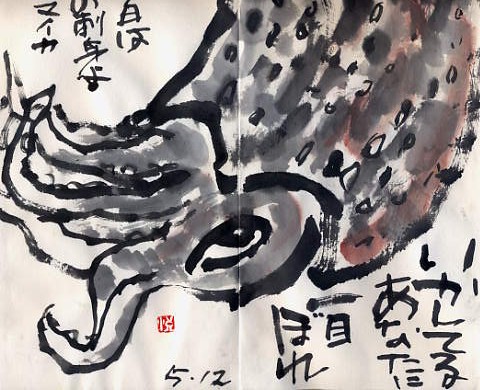 いかしてる
あなたに
一目
ぼれ
5.12
目は
の刺身よ
マイカ